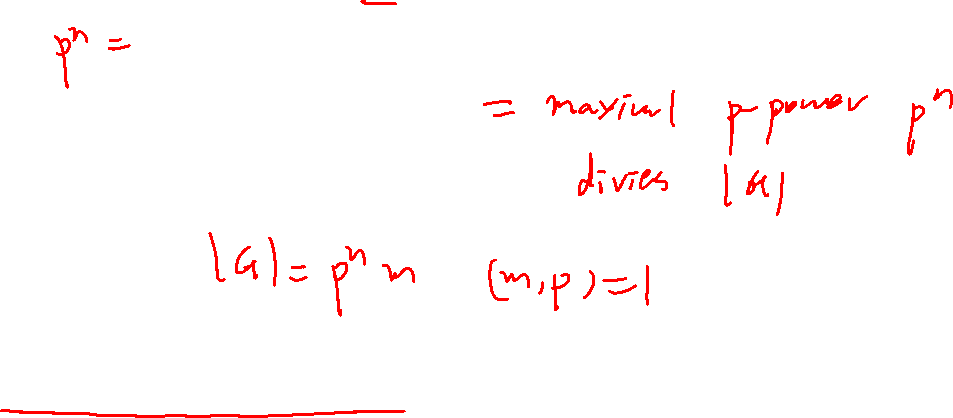 pⁿ =
= maximl p-power pⁿ
divies |G|
|G| = pⁿ m (m,p)=1